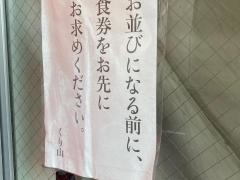 お並びになる前に、
食券をお先に
お求めください。
くり山